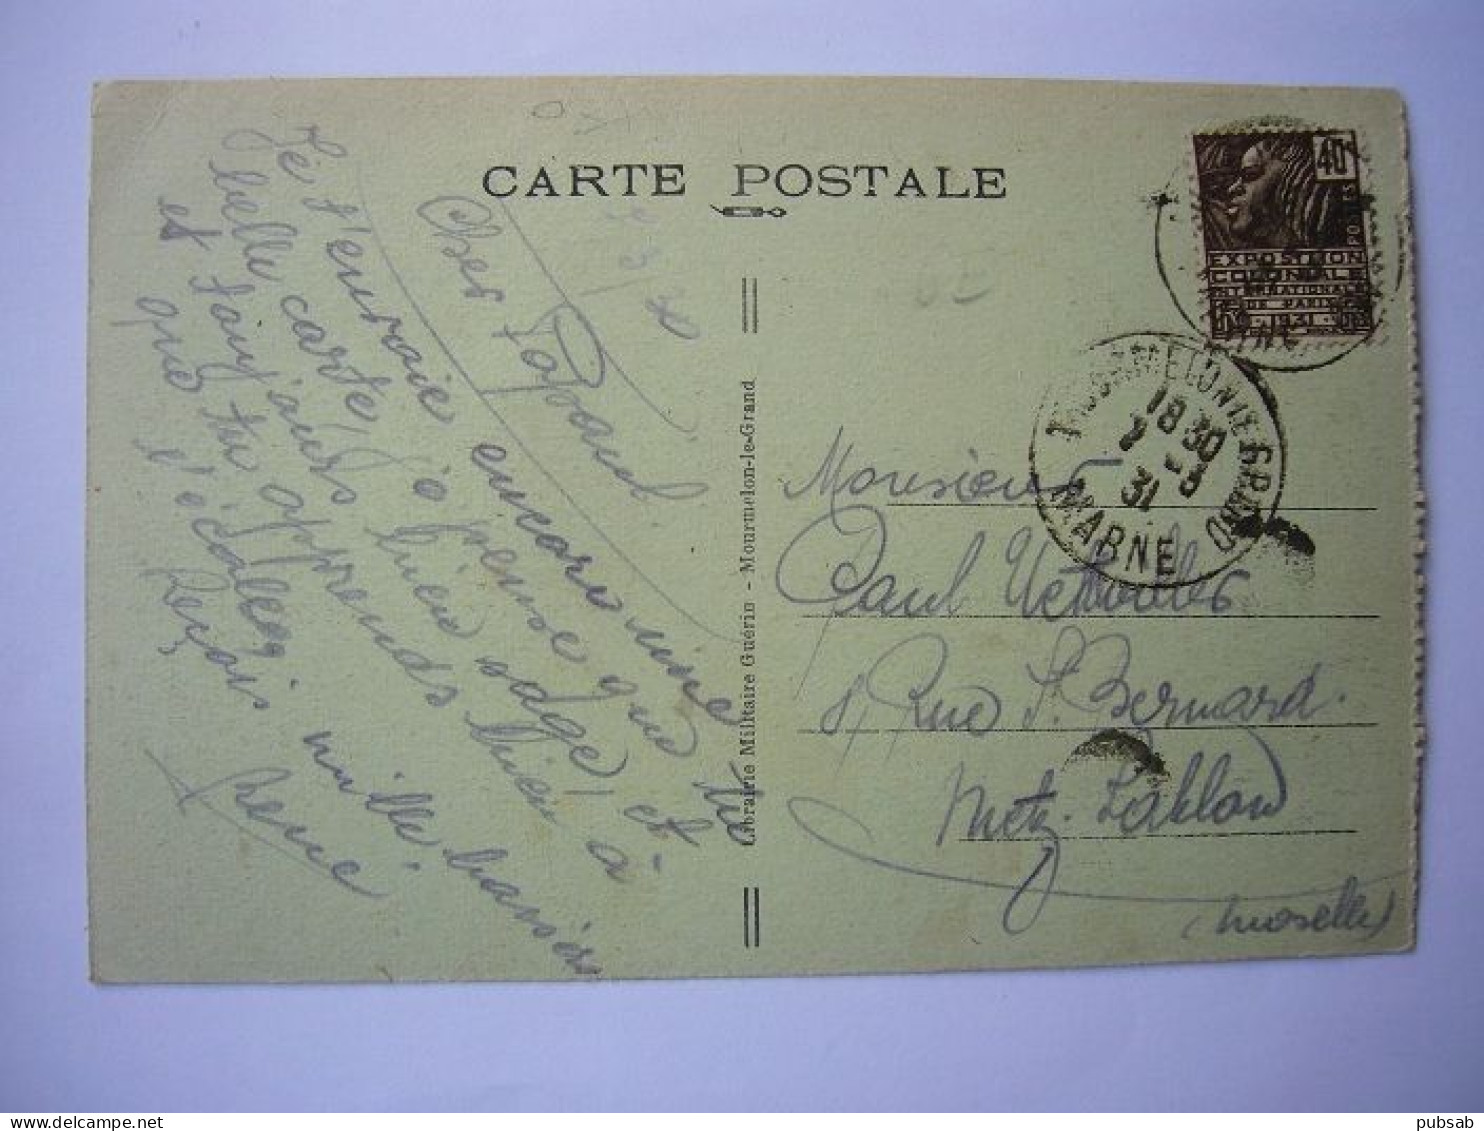 CARTE POSTALE
Cher Popaul
Je t'envoie encore une
belle carte, je pense que tu
et toujours bien sage, et
que tu apprends bien à
l'école, mille baisers
Reçois
Librairie Militaire Guérin - Mourmelon-le-Grand
40c
POSTES
EXPOSITION
COLONIALE
INTERNATIONALE
DE PARIS
1931
MOURMELON-LE-GRAND
18 30
2 - 3
31
MARNE
Monsieur
Paul
8, Rue St. Bernard.
Metz. Sablon
(Moselle)
pubsab